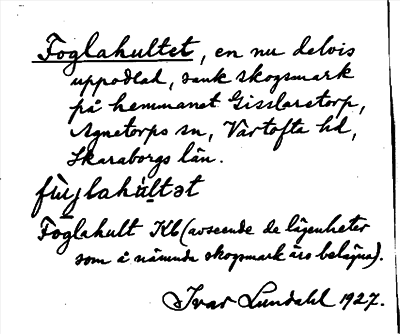 Foglahultet, en nu delvis
uppodlad, sank skogsmark
på hemmanet Gisslarstorp,
Agnetorps sn, Vartofta hd,
Skaraborgs län.
fùglahùltət
Foglahult Kb (avseende de lägenheter
som å nämnda skogsmark äro belägna).
Ivar Lundahl 1927.